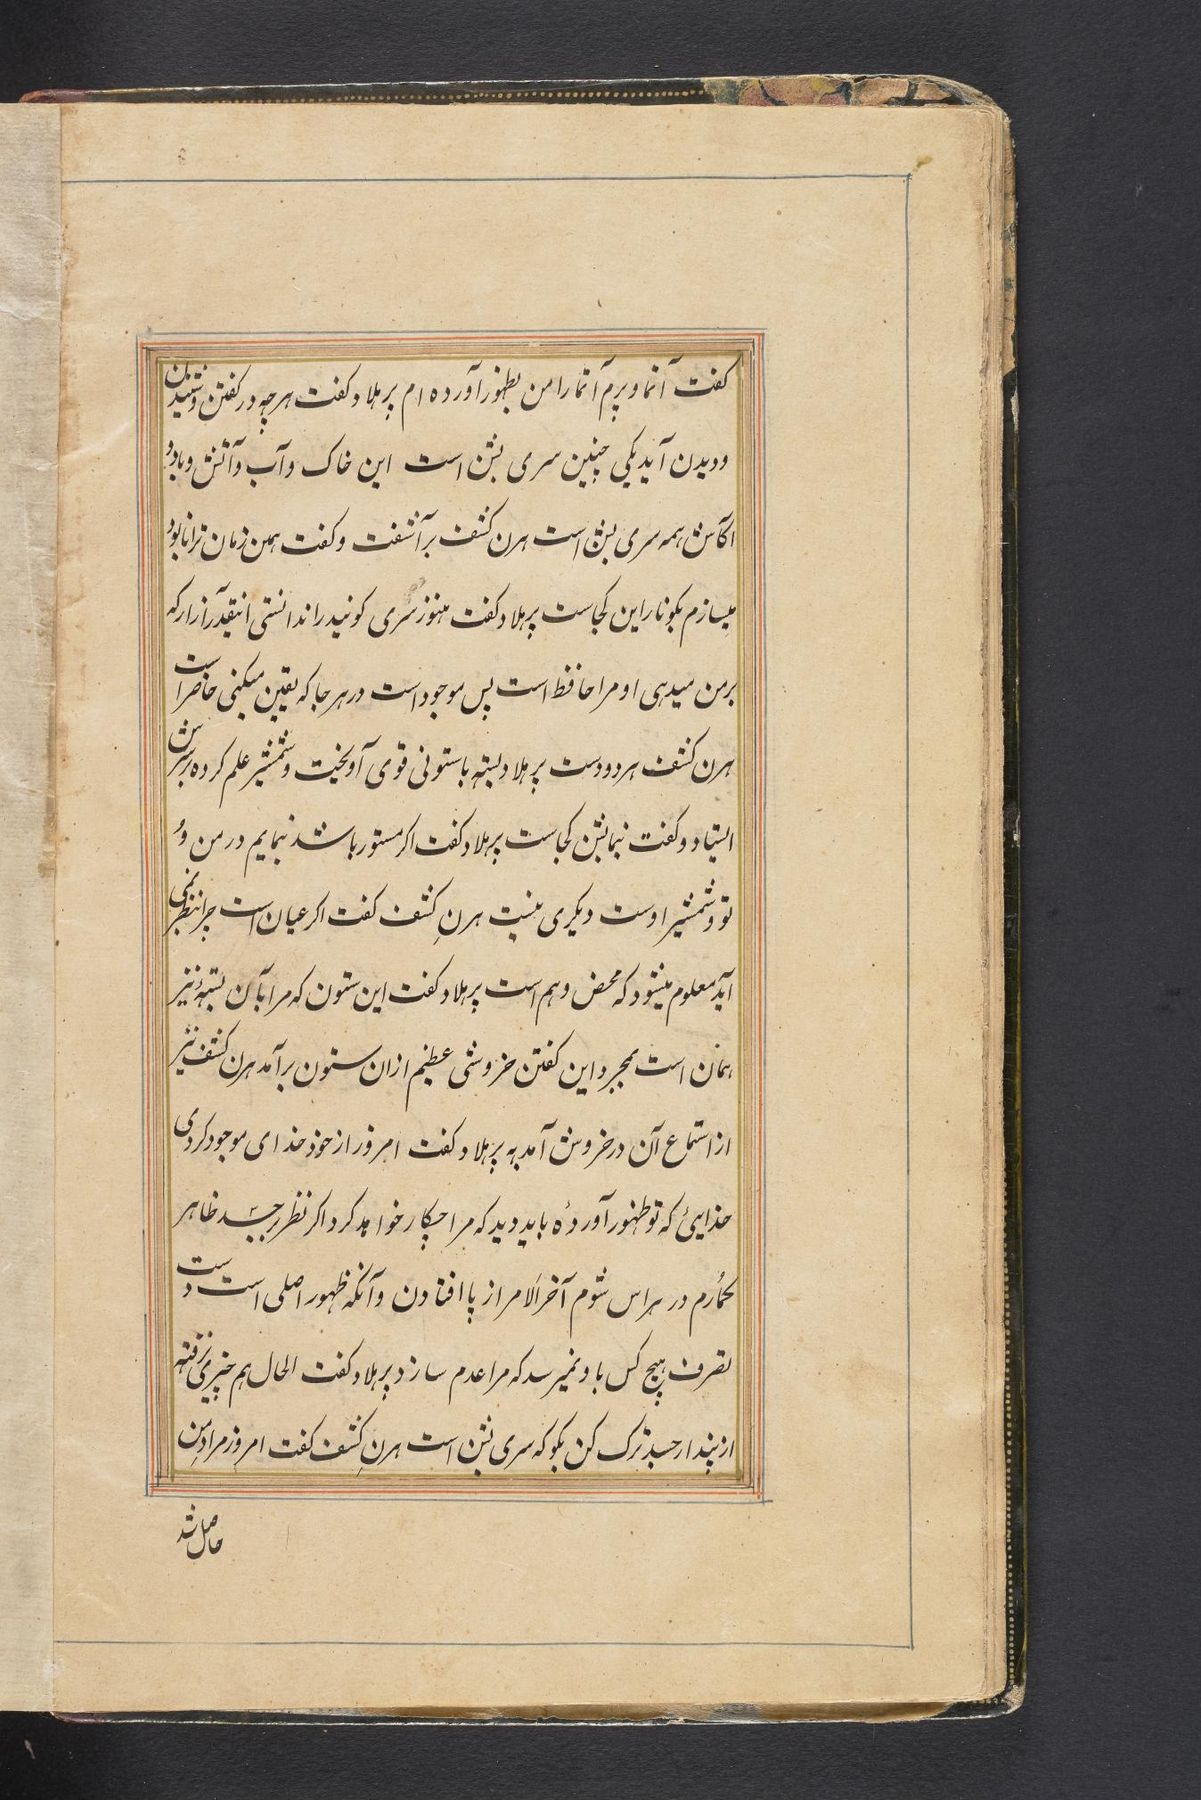 کفت آنما و پرم آنما را من بظهور آورده ام پرهلاد کفت هر چه در کفتن و شنیدن
و دیدن آید یکی چنین سری بشن است این خاک و آب و آتش و باد و
اکآش همه سری بشن است هرن کشف برآشفت و کفت همین زمان ترا نابود
میسازم بکو ناراین کجاست پرهلاد کفت هنوز سری کوبند را ندانستی اینقدر آزار که
بر من میدهی او مرا حافظ است پس موجود است در هر جا که یقین میکنی حاضر است
هرن کشف هر دو دست پرهلاد بسته باستونی قوی آویخت و شمشیر علم کرده بر سرش
ایستاد و کفت بنما بشن کجاست پرهلاد کفت اکر مستور باشد بنمایم در من و
تو و شمشیر اوست دیکری نیست هرن کشف کفت اکر عیان است چرا بنظر نمی
آید معلوم میشود که محض وهم است پرهلاد کفت این ستون که مرا بآن بستهٔ نیز
همان است بمجرد این کفتن خروشی عظیم ازان ستون برآمد هرن کشف نیز
از استماع آن در خروش آمد به پرهلاد کفت امروز از خود خدای موجود کردی
خدایی که تو بظهور آوردهٔ باید دید که مرا چکار خواهد کرد اکر نظر بر جسد ظاهر
کمارم در هراس شوم آخر الامر از پا افتادن و آنکه ظهور اصلی است دست
تصرف هیچ کس باو نمیرسد که مرا عدم سازد پرهلاد کفت الحال هم چیزی نرفته
از پندار جسد ترک کن بکو که سری بشن است هرن کشف کفت امروز مراد من
حاصل شد